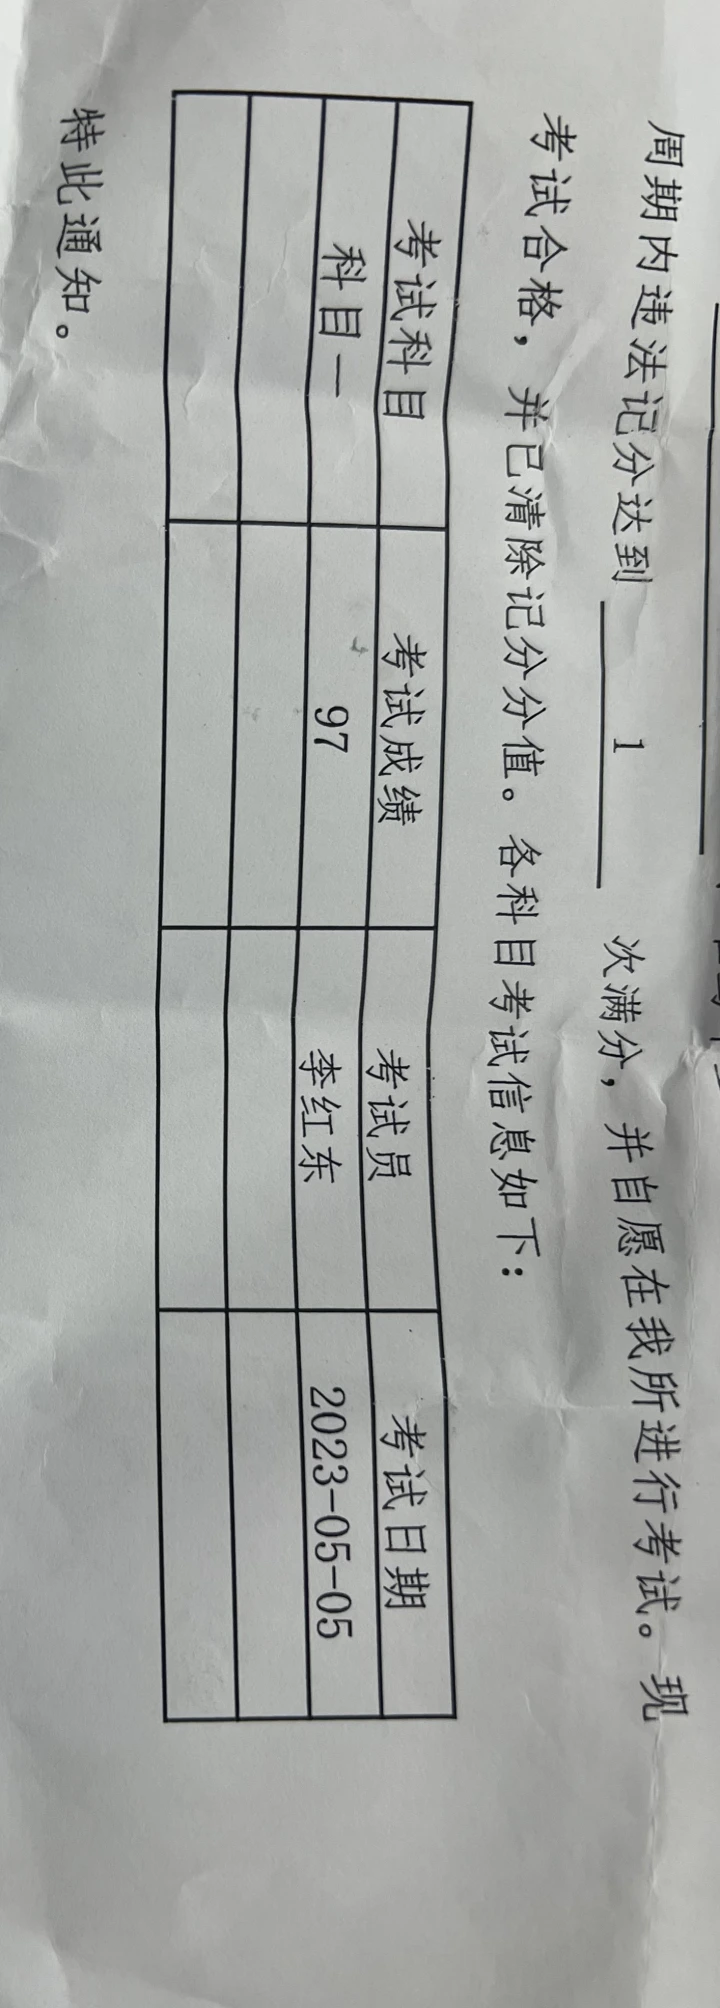 周期内违法记分达到 1 次满分，并自愿在我所进行考试。现
考试合格，并已清除记分分值。各科目考试信息如下：
考试科目 考试成绩 考试员 考试日期
科目一 97 李红东 2023-05-05
特此通知。